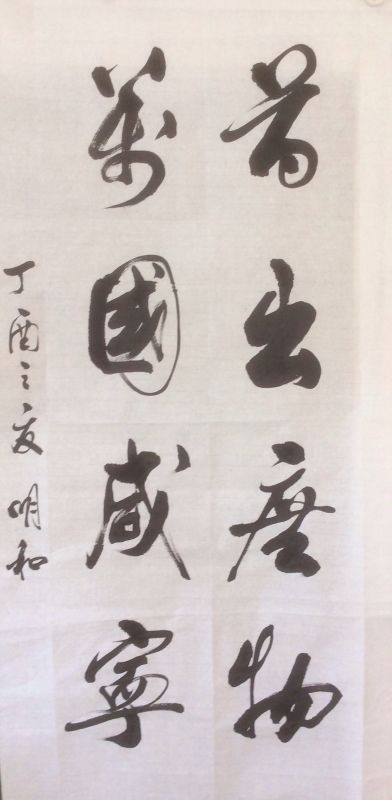 首出庶物
萬國咸寧
丁酉之夏 明和